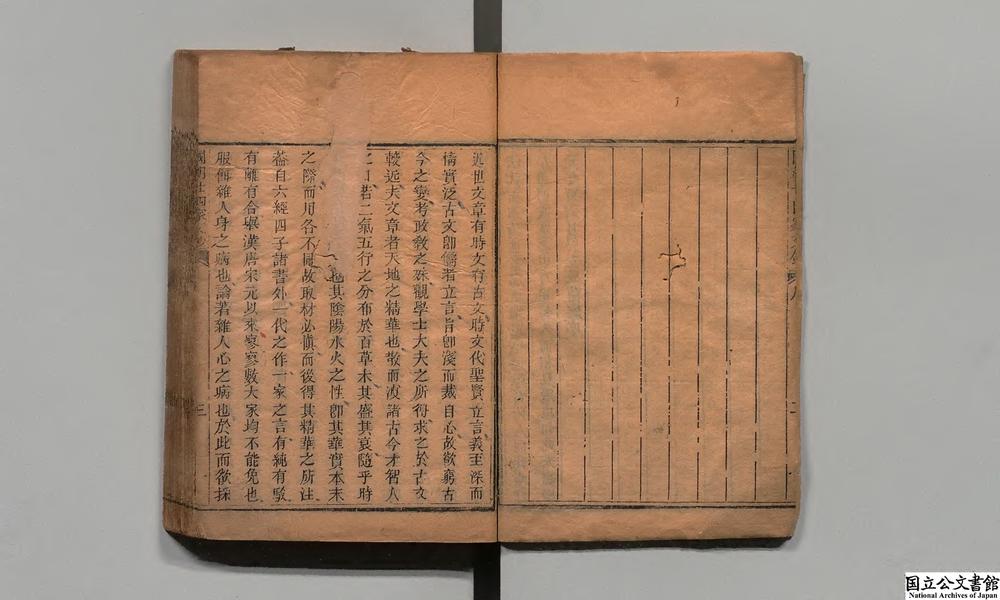 近世文章有時文有古文時文代聖賢立言義至深而
情實泛古文卽儒者立言旨卽淺而裁自心故欲窮古
今之變考政敎之殊觀學士大夫之所得求之於古文
較近夫文章者天地之精華也散而渙諸古今才智人
之口若二氣五行之分布於百草木其盛其衰隨乎時
也其陰陽水火之性卽其華實本末
之際而用各不同故取材必慎而後得其精華之所注
葢自六經四子諸書外一代之作一家之言有純有駁
有離有合舉漢唐宋元以來寥寥數大家均不能免也
服餌雜人身之病也論著雜人心之病也於此而欲採
三
国立公文書館
National Archives of Japan